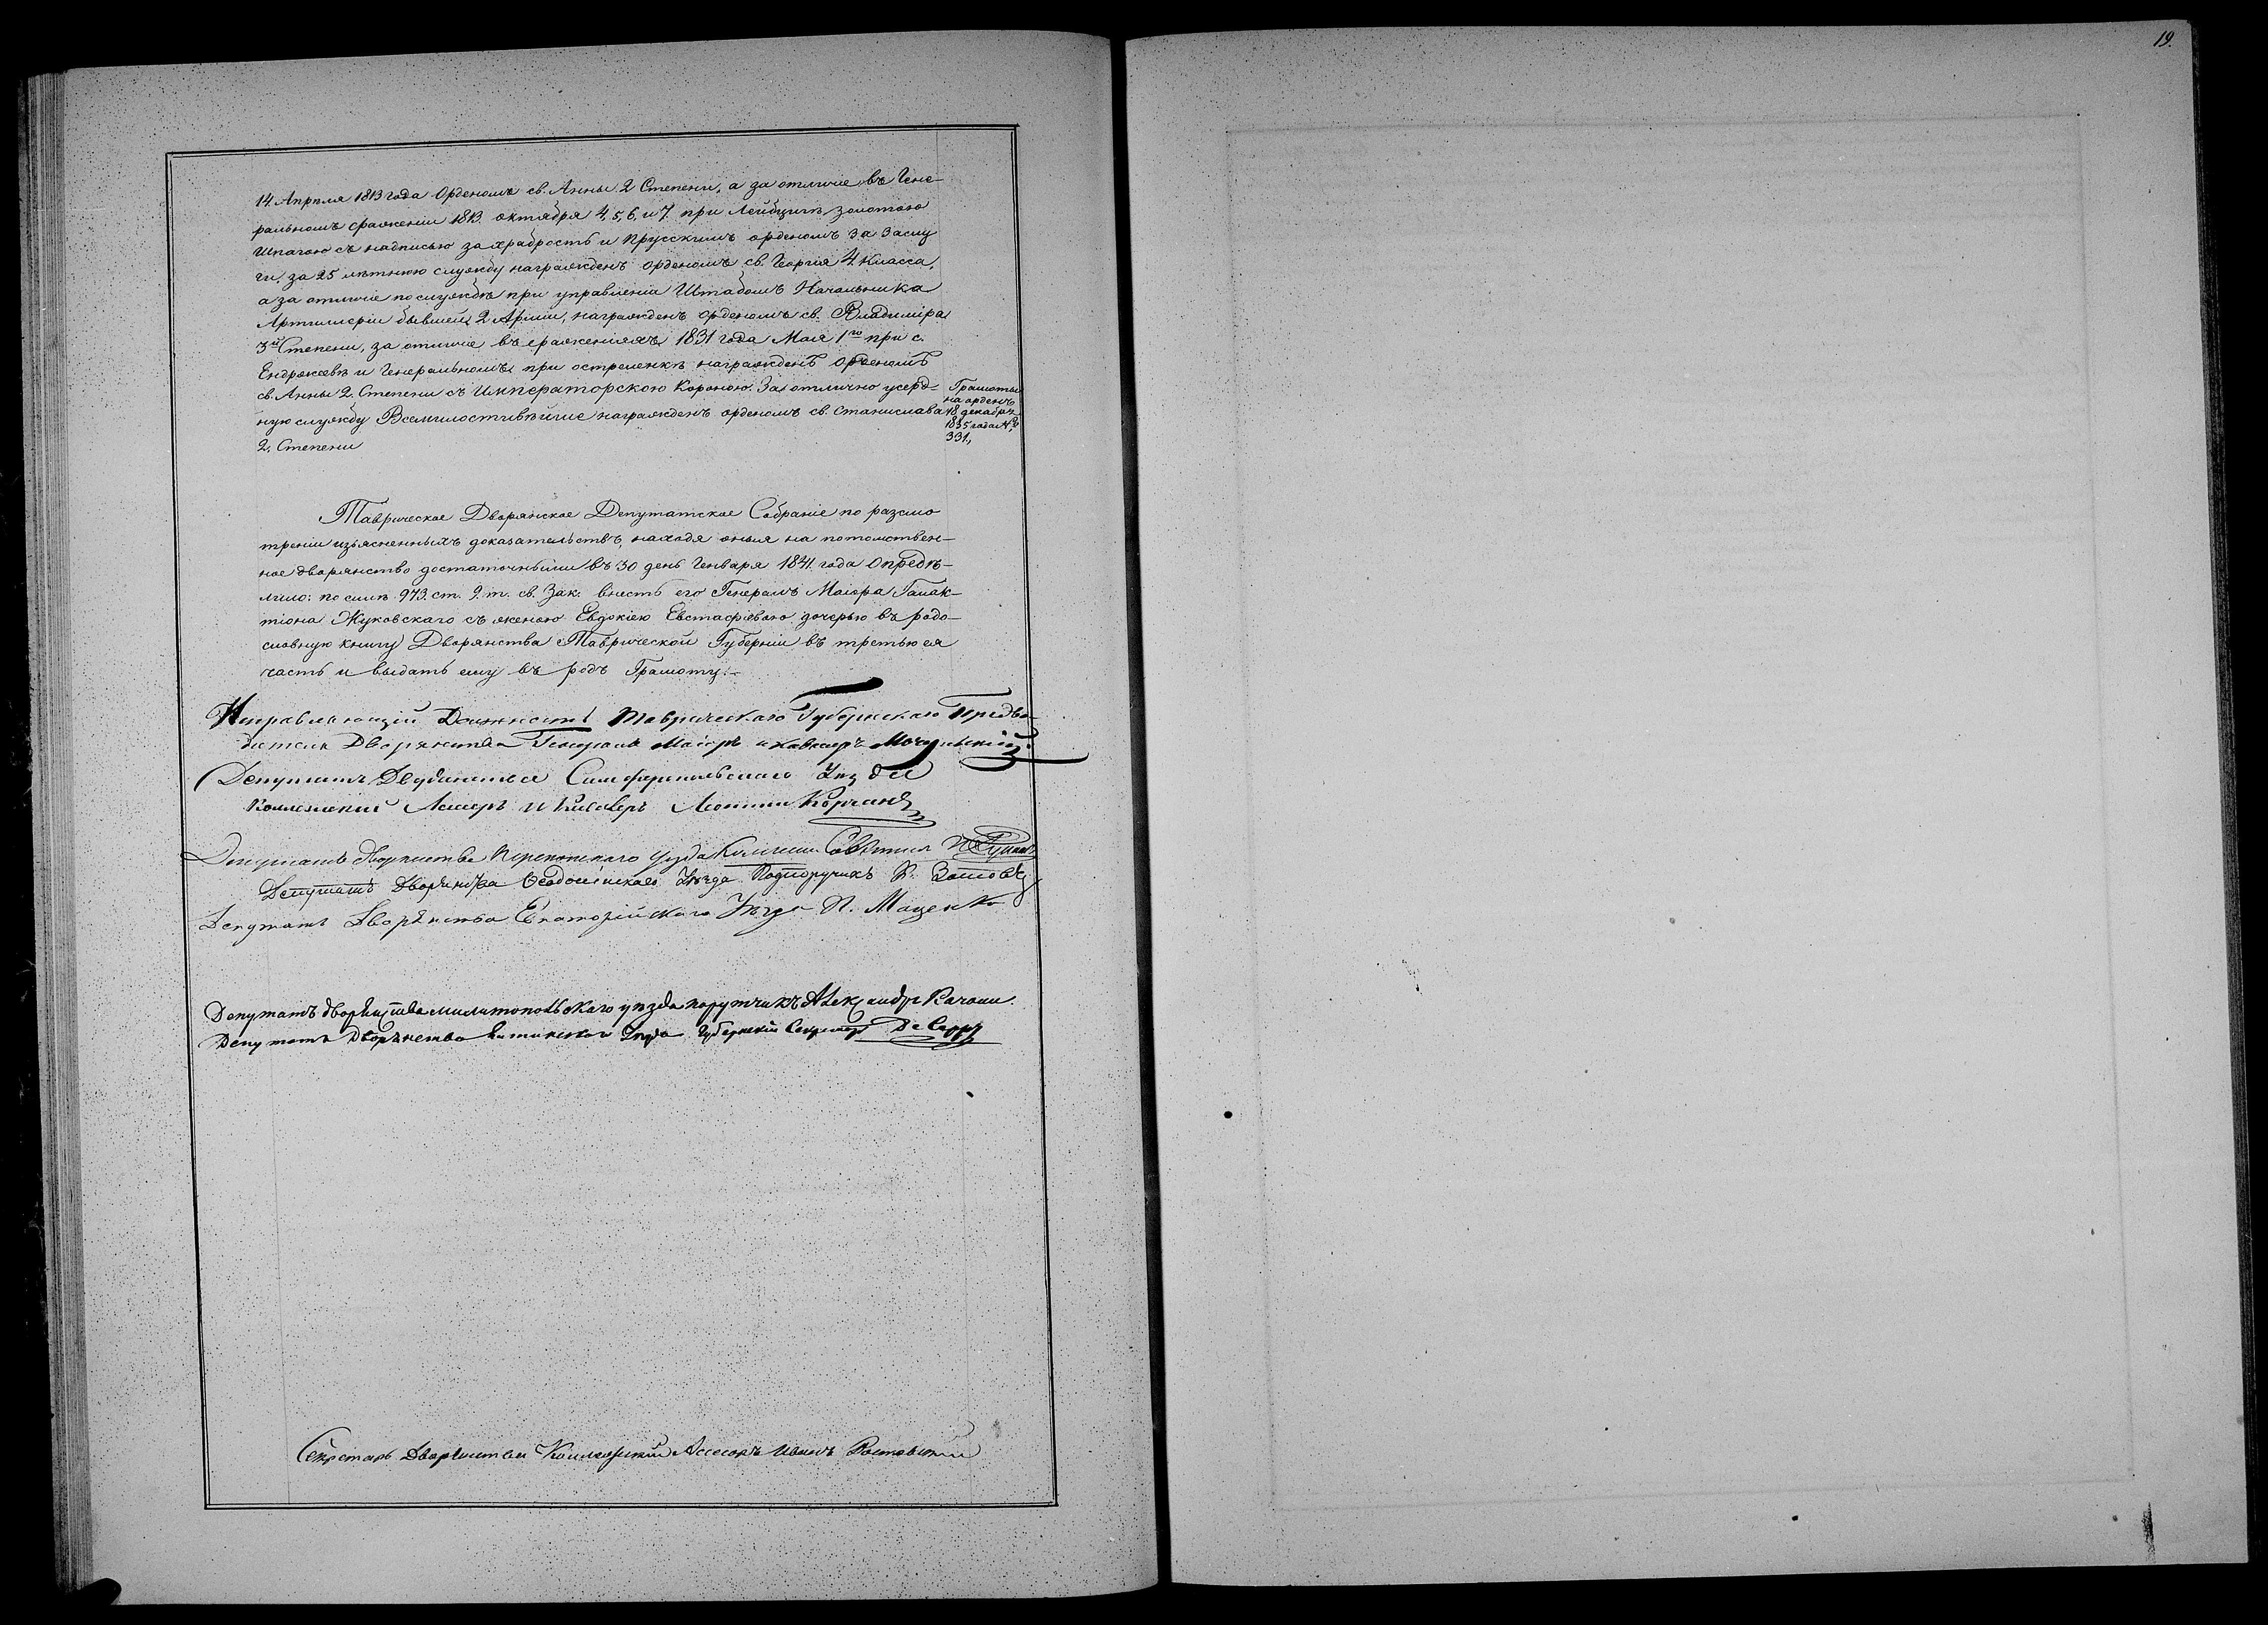 19.
14. Апрѣля 1813 года Орденомъ св. Анны 2 Степени, а за отличіе въ Гене-
ральномъ сраженіи 1813. октября 4, 5, 6, и 7. при Лейбцигѣ золотою
шпагою съ надписью за храбрость и Прусскимъ орденомъ за Заслу
ги, за 25 лѣтнюю службу награжденъ орденомъ св. Георгія 4 Класса,
а за отличіе по службѣ при управленіи Штабомъ Начальника
Артиллеріи бывшей 2 Арміи, награжденъ орденомъ св. Владиміра
3й Степени, за отличіе въ сраженіяхъ 1831 года Мая 1го при с.
Ендржеевѣ и Генеральномъ при остроленкѣ награжденъ орденомъ
св. Анны 2. Степени съ Императорскою Короною. За отлично усерд-
ную службу Всемилостивѣйше награжденъ орденомъ св. Станислава
2. Степени
Грамоты
на орденъ
18 декабря
1835 года №
331,
Таврическое Дворянское Депутатское Собраніе по разсмо
трѣніи изъясненныхъ доказательствъ, находя оныя на потомствен-
ное дворянство достаточными въ 30 день Генваря 1841. года опредѣ-
лило: по силѣ 973. ст. 9. т. св. Зак. внесть его Генералъ Маіора Галак-
тіона Жуковскаго съ женою Евдокіею Евстафіевою дочерью въ родо-
словную книгу Дворянства Таврической Губерніи въ третью ея
часть и выдать ему въ родъ Грамоту.
Исправляющій Должность Таврическаго Губернскаго Предво-
дителя Дворянства Генералъ Маіоръ и кавалеръ
Депутатъ Дворянства Симферопольскаго Уѣзда
Коллежскій Асесоръ и Кавалеръ
Депутатъ дворянства Перекопскаго уѣзда
Депутатъ Дворянства Ѳеодосійскаго Уѣзда Подпоручикъ
Депутатъ Дворянства Евпаторійскаго Уѣзда П. Маценко
Депутатъ дворянства мелитопольскаго уѣзда поручикъ Александръ Качони.
Депутатъ Дворянства Ялтинскаго Уѣзда Губернскій Секретарь Де Серръ
Секретарь Дворянства Коллежскій Асесоръ Иванъ